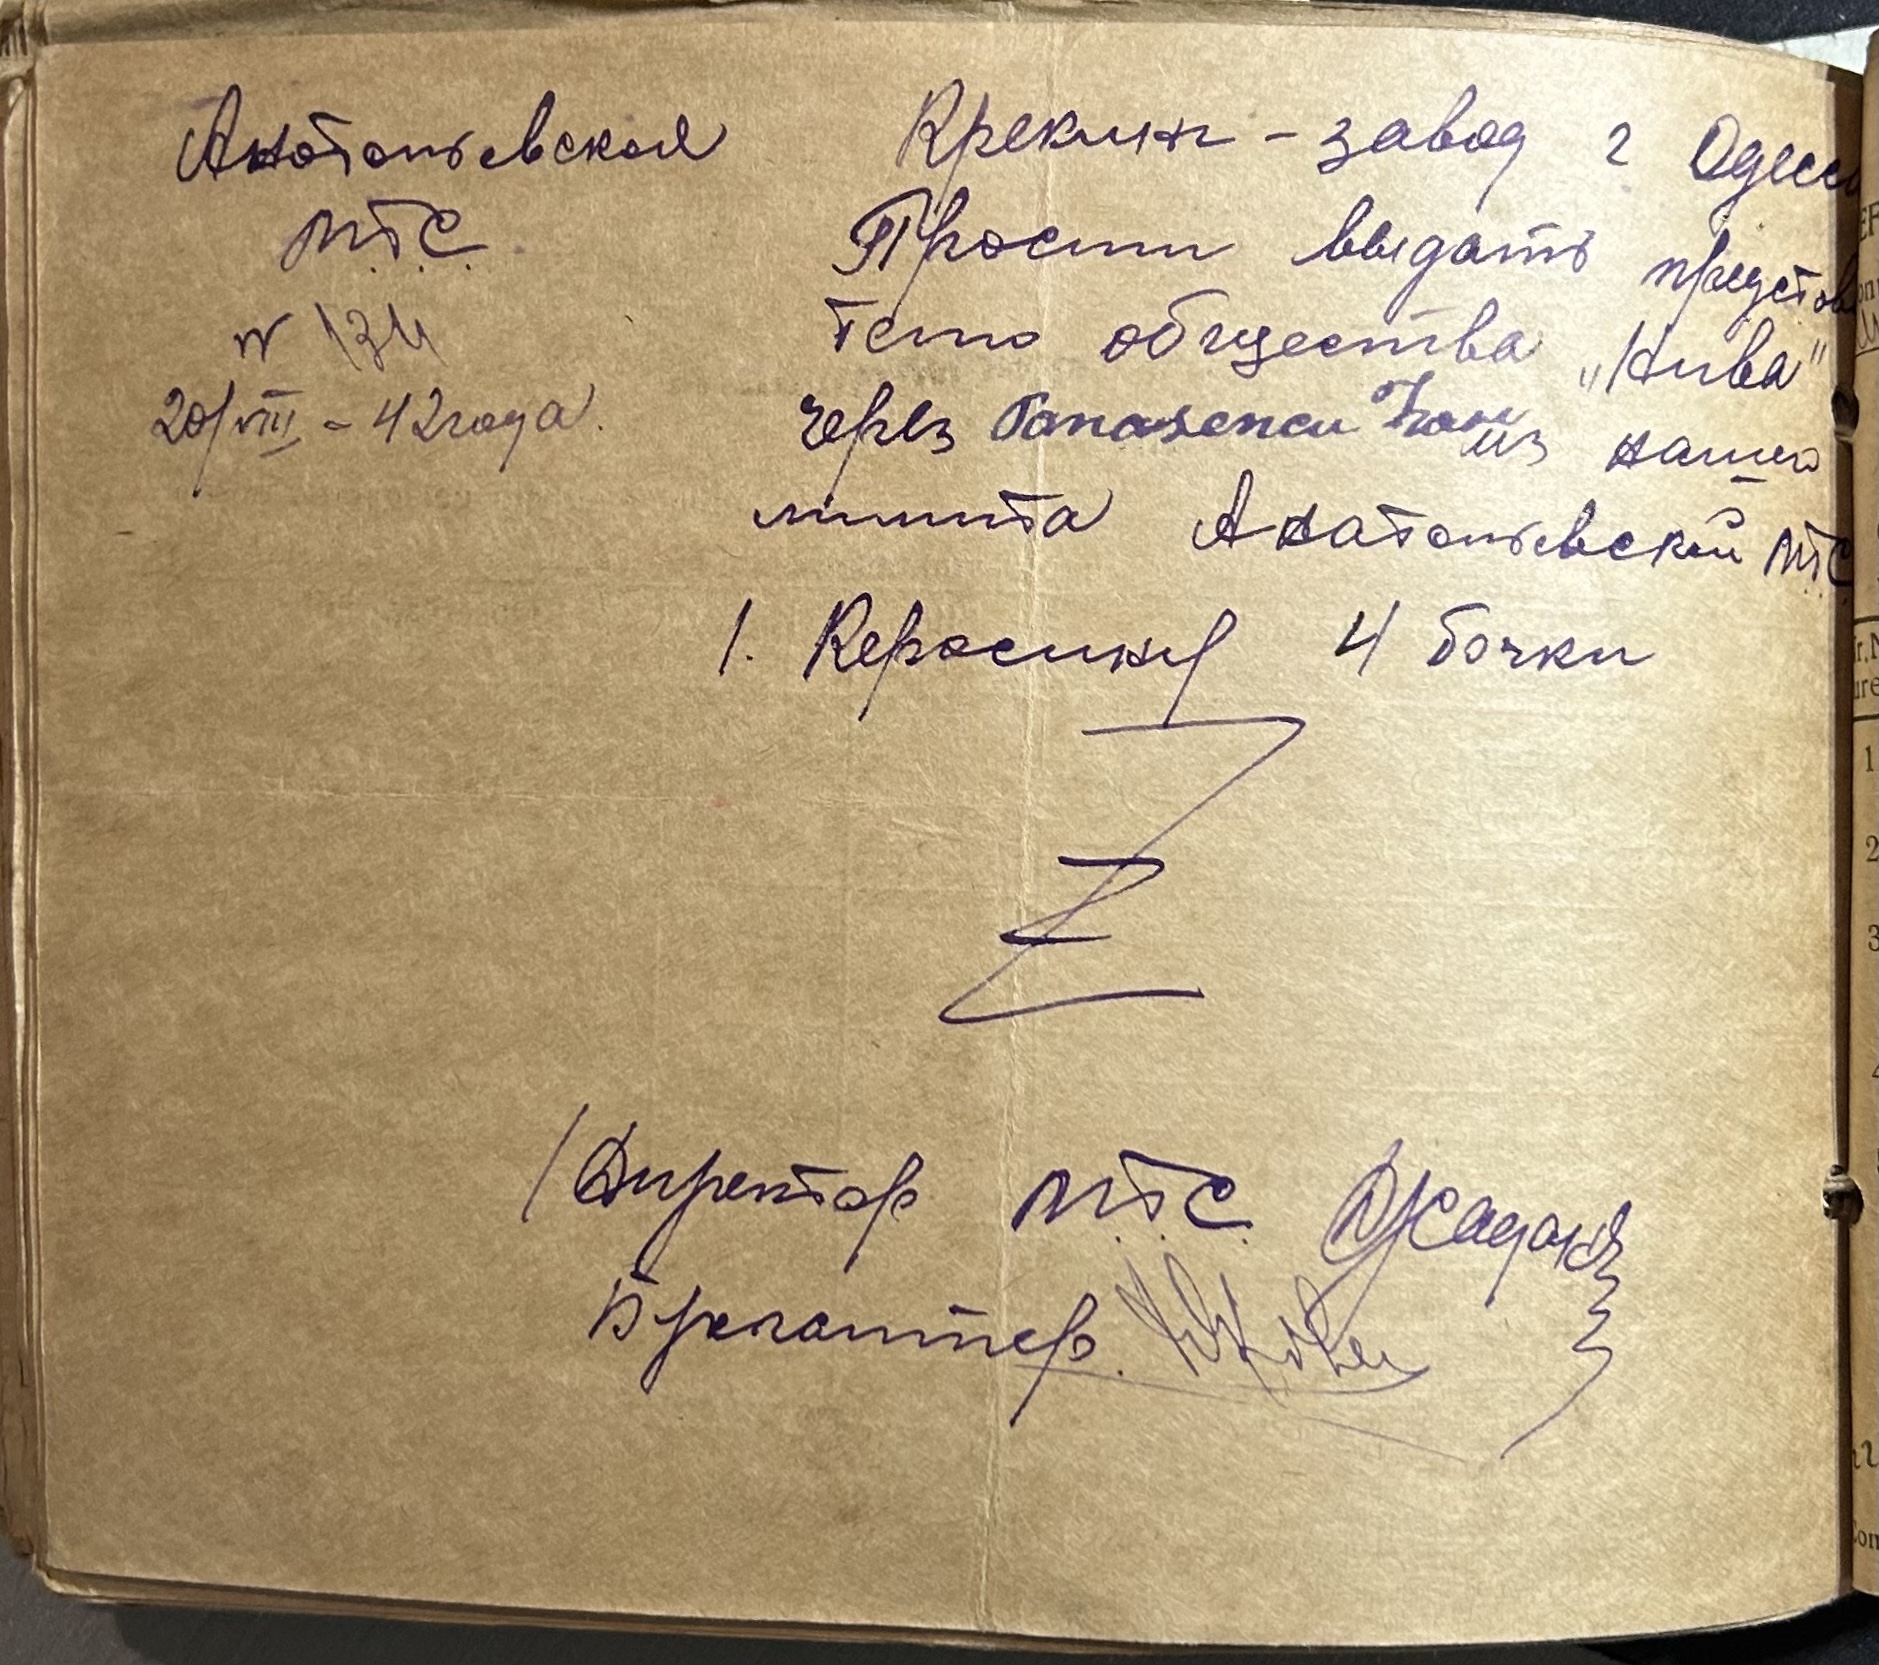 Анатольевская
М.Т.С.
N 134
20/VIII - 42 года.
Крекинг-завод г Одесс
Просим выдать представ
телю общества „Нива"
через из нашего
лимита Анатольевской М.Т.С
1. Керосину 4 бочки
/Директор М.Т.С.
Бухгалтер.
1
2
3